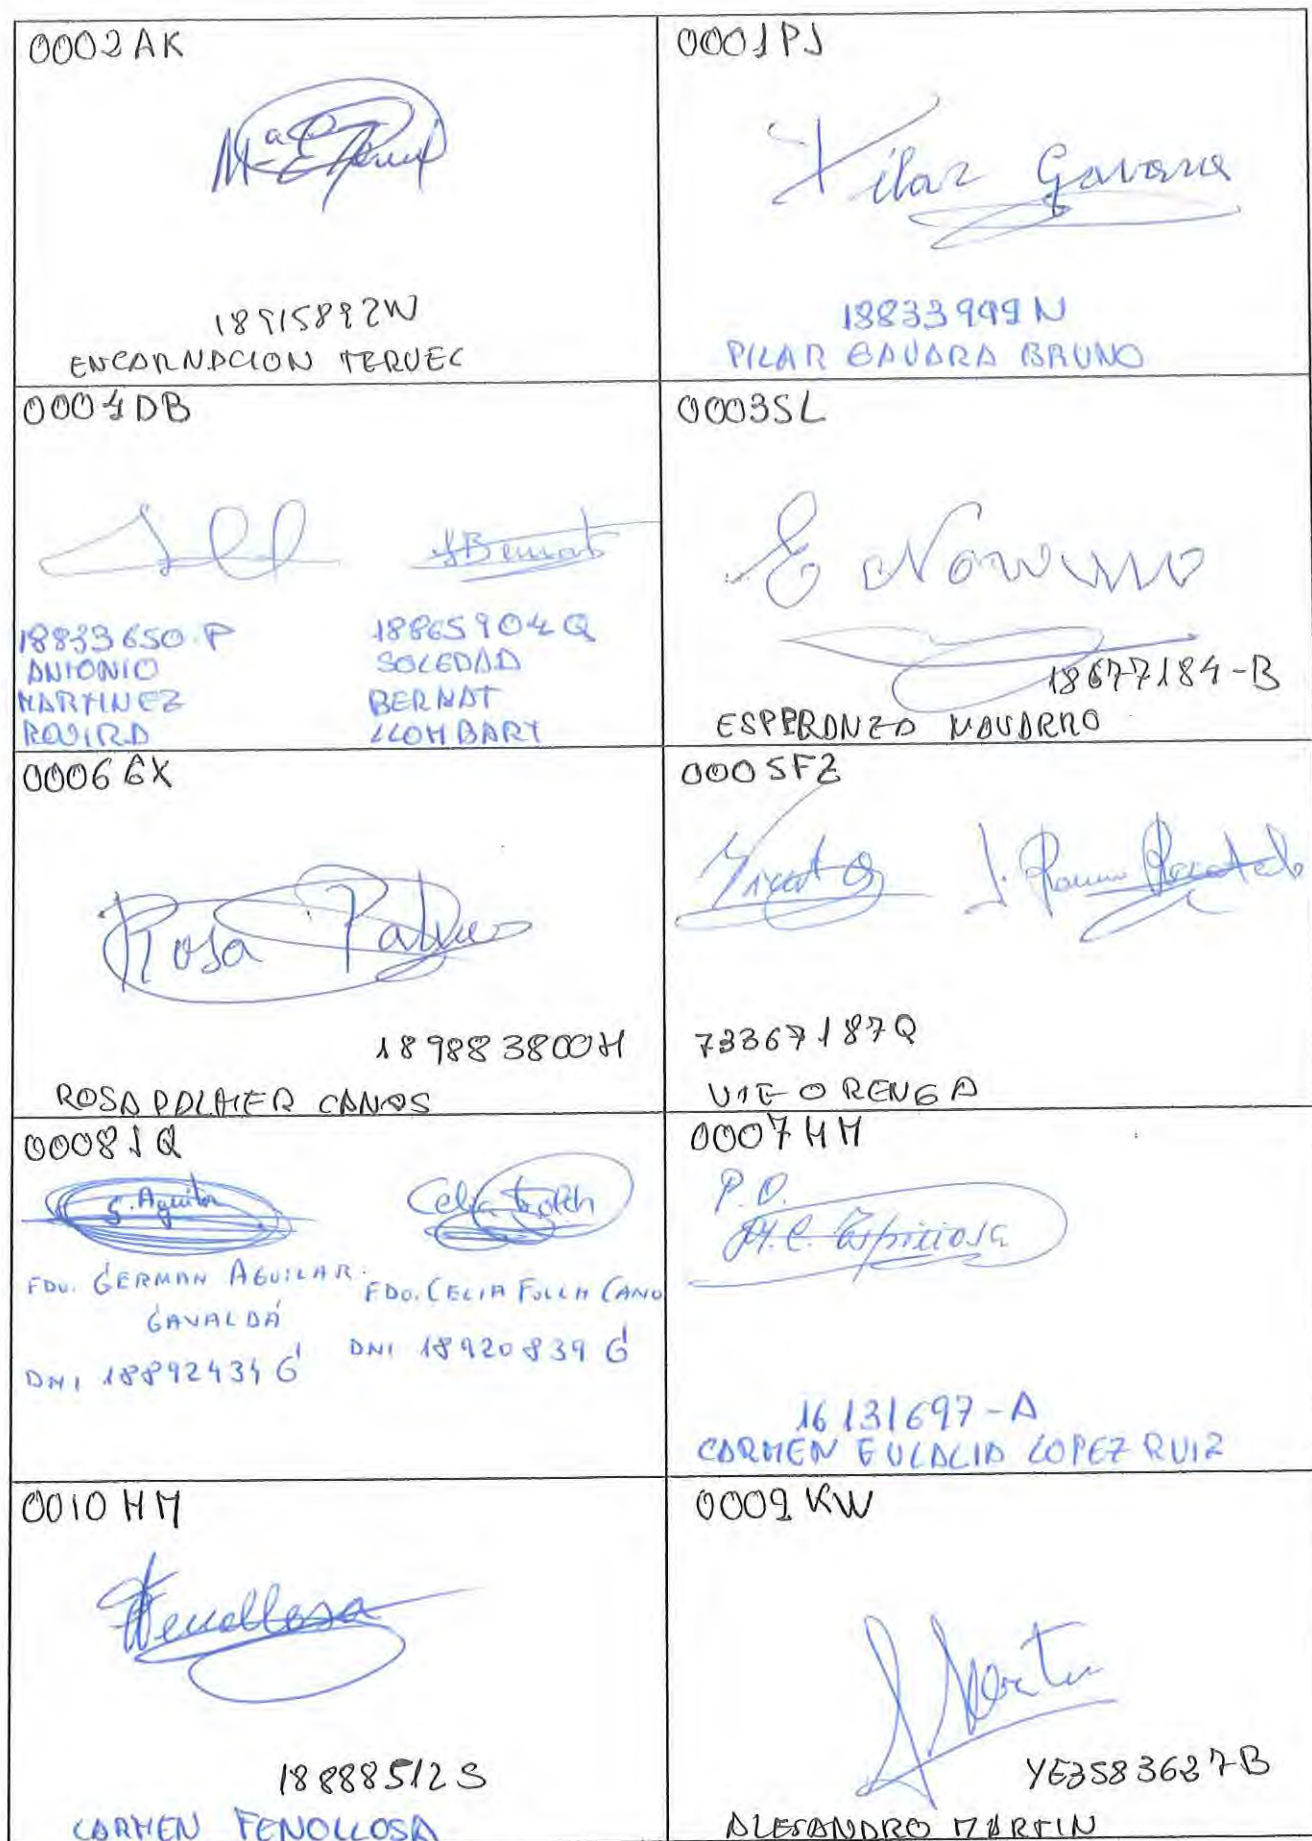 0002AK
Mª E Teruel
18915892W
ENCARNACION TERUEL
0001PJ
Pilar Gavara
18833999N
PILAR GAVARA BRUNO
0004DB
S Bernat
18833650-P
ANTONIO
MARTINEZ
ROVIRA
18865904Q
SOLEDAD
BERNAT
LLOMBART
0003SL
E Navarro
18677184-B
ESPERANZA NAVARRO
0006GX
Rosa Palmer
189883800H
ROSA PALMER CANOS
0005FZ
73367187Q
VTE ORENGA
0008JQ
G. Aguilar
Celia Folch
FDO. GERMAN AGUILAR
GAVALDÁ
DNI 18892434 G
FDO. CELIA FOLCH CANO
DNI 18920839 G
0007HM
P.O.
M.C. Espinosa
16131697-A
CARMEN EULALIA LOPEZ RUIZ
0010HM
Fenollosa
18888512S
CARMEN FENOLLOSA
0009KW
A Martin
YE3583637-B
ALEJANDRO MARTIN